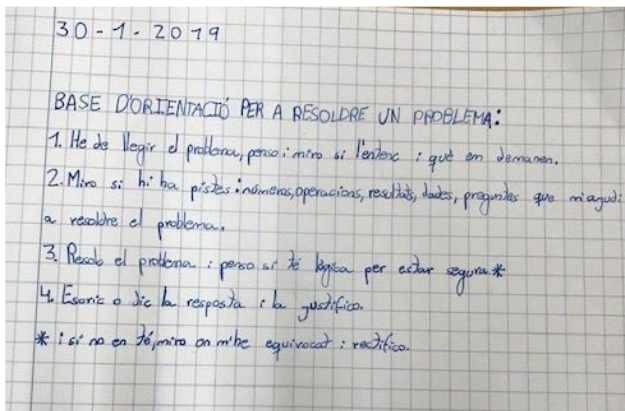 30-1-2019
BASE D'ORIENTACIÓ PER A RESOLDRE UN PROBLEMA:
1. He de llegir el problema, penso i miro si l'entenc i què em demanen.
2. Miro si hi ha pistes: números, operacions, resultats, dades, preguntes que m'ajudi
a resoldre el problema.
3. Resolc el problema i penso si té lògica per estar segura.*
4. Escric o dic la resposta i la justifico.
* i si no en té, miro on m'he equivocat i rectifico.